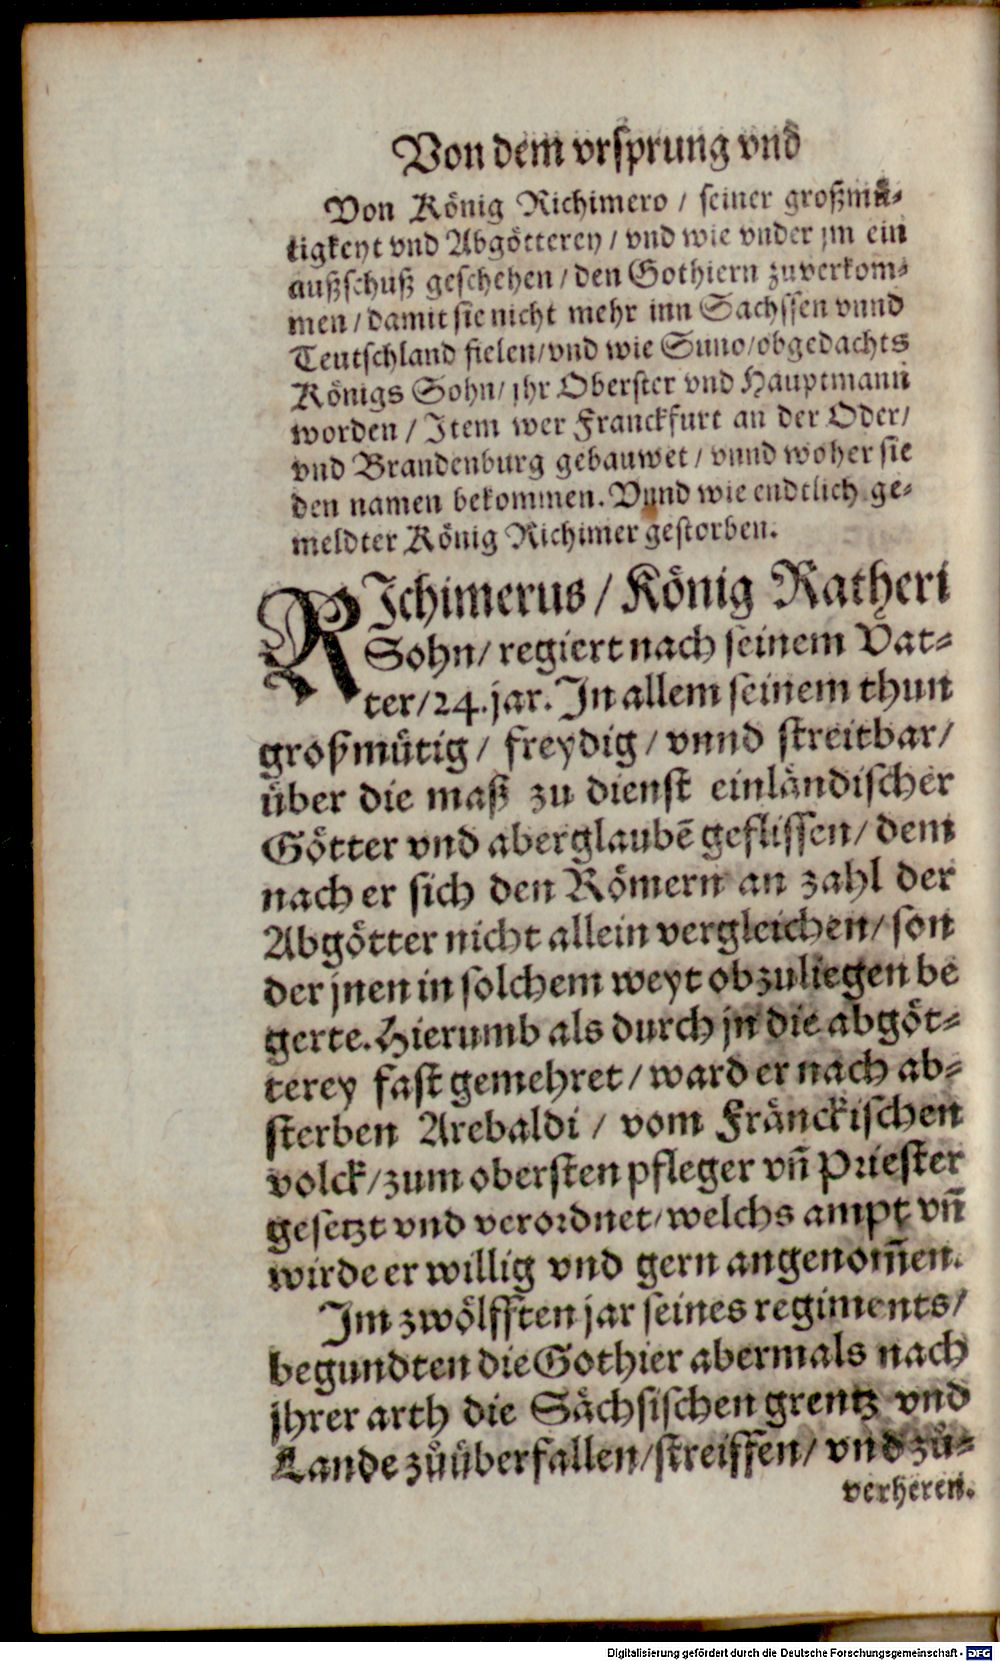 Von dem vrsprung vnd
Von König Richimero / seiner großmü-
tigkeyt vnd Abgötterey / vnd wie vnder jm ein
außschuß geschehen / den Gothiern zuverkom-
men / damit sie nicht mehr inn Sachssen vnnd
Teutschland fielen / vnd wie Suno / obgedachts
Königs Sohn / jhr Oberster vnd Hauptmann
worden / Item wer Franckfurt an der Oder /
vnd Brandenburg gebauwet / vnnd woher sie
den namen bekommen. Vnnd wie endtlich ge-
meldter König Richimer gestorben.
RIchimerus / König Ratheri
Sohn / regiert nach seinem Vat-
ter / 24. jar. In allem seinem thun
großmütig / freydig / vnnd streitbar /
über die maß zu dienst einländischer
Götter vnd aberglaubē geflissen / dem
nach er sich den Römern an zahl der
Abgötter nicht allein vergleichen / son
der jnen in solchem weyt obzuliegen be
gerte. Hierumb als durch jn die abgöt-
terey fast gemehret / ward er nach ab-
sterben Arebaldi / vom Fränckischen
volck / zum obersten pfleger vñ Priester
gesetzt vnd verordnet / welchs ampt vñ
wirde er willig vnd gern angenom̃en.
Im zwölfften jar seines regiments /
begundten die Gothier abermals nach
jhrer arth die Sächsischen grentz vnd
Lande zů überfallen / streiffen / vnd zů-
verheren.
Digitalisierung gefördert durch die Deutsche Forschungsgemeinschaft - DFG